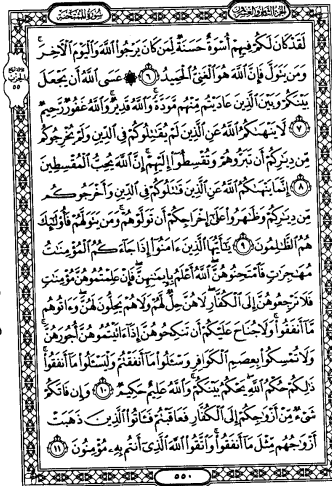 الجزء الثامن والعشرون
سورة الممتحنة
لَقَدْ كَانَ لَكُمْ فِيهِمْ أُسْوَةٌ حَسَنَةٌ لِمَن كَانَ يَرْجُوا اللَّهَ وَالْيَوْمَ الْآخِرَ
وَمَن يَتَوَلَّ فَإِنَّ اللَّهَ هُوَ الْغَنِيُّ الْحَمِيدُ ٦ عَسَى اللَّهُ أَن يَجْعَلَ
بَيْنَكُمْ وَبَيْنَ الَّذِينَ عَادَيْتُم مِّنْهُم مَّوَدَّةً وَاللَّهُ قَدِيرٌ وَاللَّهُ غَفُورٌ رَّحِيمٌ
٧ لَّا يَنْهَاكُمُ اللَّهُ عَنِ الَّذِينَ لَمْ يُقَاتِلُوكُمْ فِي الدِّينِ وَلَمْ يُخْرِجُوكُم
مِّن دِيَارِكُمْ أَن تَبَرُّوهُمْ وَتُقْسِطُوا إِلَيْهِمْ إِنَّ اللَّهَ يُحِبُّ الْمُقْسِطِينَ
٨ إِنَّمَا يَنْهَاكُمُ اللَّهُ عَنِ الَّذِينَ قَاتَلُوكُمْ فِي الدِّينِ وَأَخْرَجُوكُم
مِّن دِيَارِكُمْ وَظَاهَرُوا عَلَى إِخْرَاجِكُمْ أَن تَوَلَّوْهُمْ وَمَن يَتَوَلَّهُمْ فَأُولَئِكَ
هُمُ الظَّالِمُونَ ٩ يَا أَيُّهَا الَّذِينَ آمَنُوا إِذَا جَاءَكُمُ الْمُؤْمِنَاتُ
مُهَاجِرَاتٍ فَامْتَحِنُوهُنَّ اللَّهُ أَعْلَمُ بِإِيمَانِهِنَّ فَإِنْ عَلِمْتُمُوهُنَّ مُؤْمِنَاتٍ
فَلَا تَرْجِعُوهُنَّ إِلَى الْكُفَّارِ لَا هُنَّ حِلٌّ لَّهُمْ وَلَا هُمْ يَحِلُّونَ لَهُنَّ وَآتُوهُم
مَّا أَنفَقُوا وَلَا جُنَاحَ عَلَيْكُمْ أَن تَنكِحُوهُنَّ إِذَا آتَيْتُمُوهُنَّ أُجُورَهُنَّ
وَلَا تُمْسِكُوا بِعِصَمِ الْكَوَافِرِ وَسْئَلُوا مَا أَنفَقْتُمْ وَلْيَسْئَلُوا مَا أَنفَقُوا
ذَلِكُمْ حُكْمُ اللَّهِ يَحْكُمُ بَيْنَكُمْ وَاللَّهُ عَلِيمٌ حَكِيمٌ ١٠ وَإِن فَاتَكُمْ
شَيْءٌ مِّنْ أَزْوَاجِكُمْ إِلَى الْكُفَّارِ فَعَاقَبْتُمْ فَآتُوا الَّذِينَ ذَهَبَتْ
أَزْوَاجُهُم مِّثْلَ مَا أَنفَقُوا وَاتَّقُوا اللَّهَ الَّذِي أَنتُم بِهِ مُؤْمِنُونَ ١١
٥٥٠